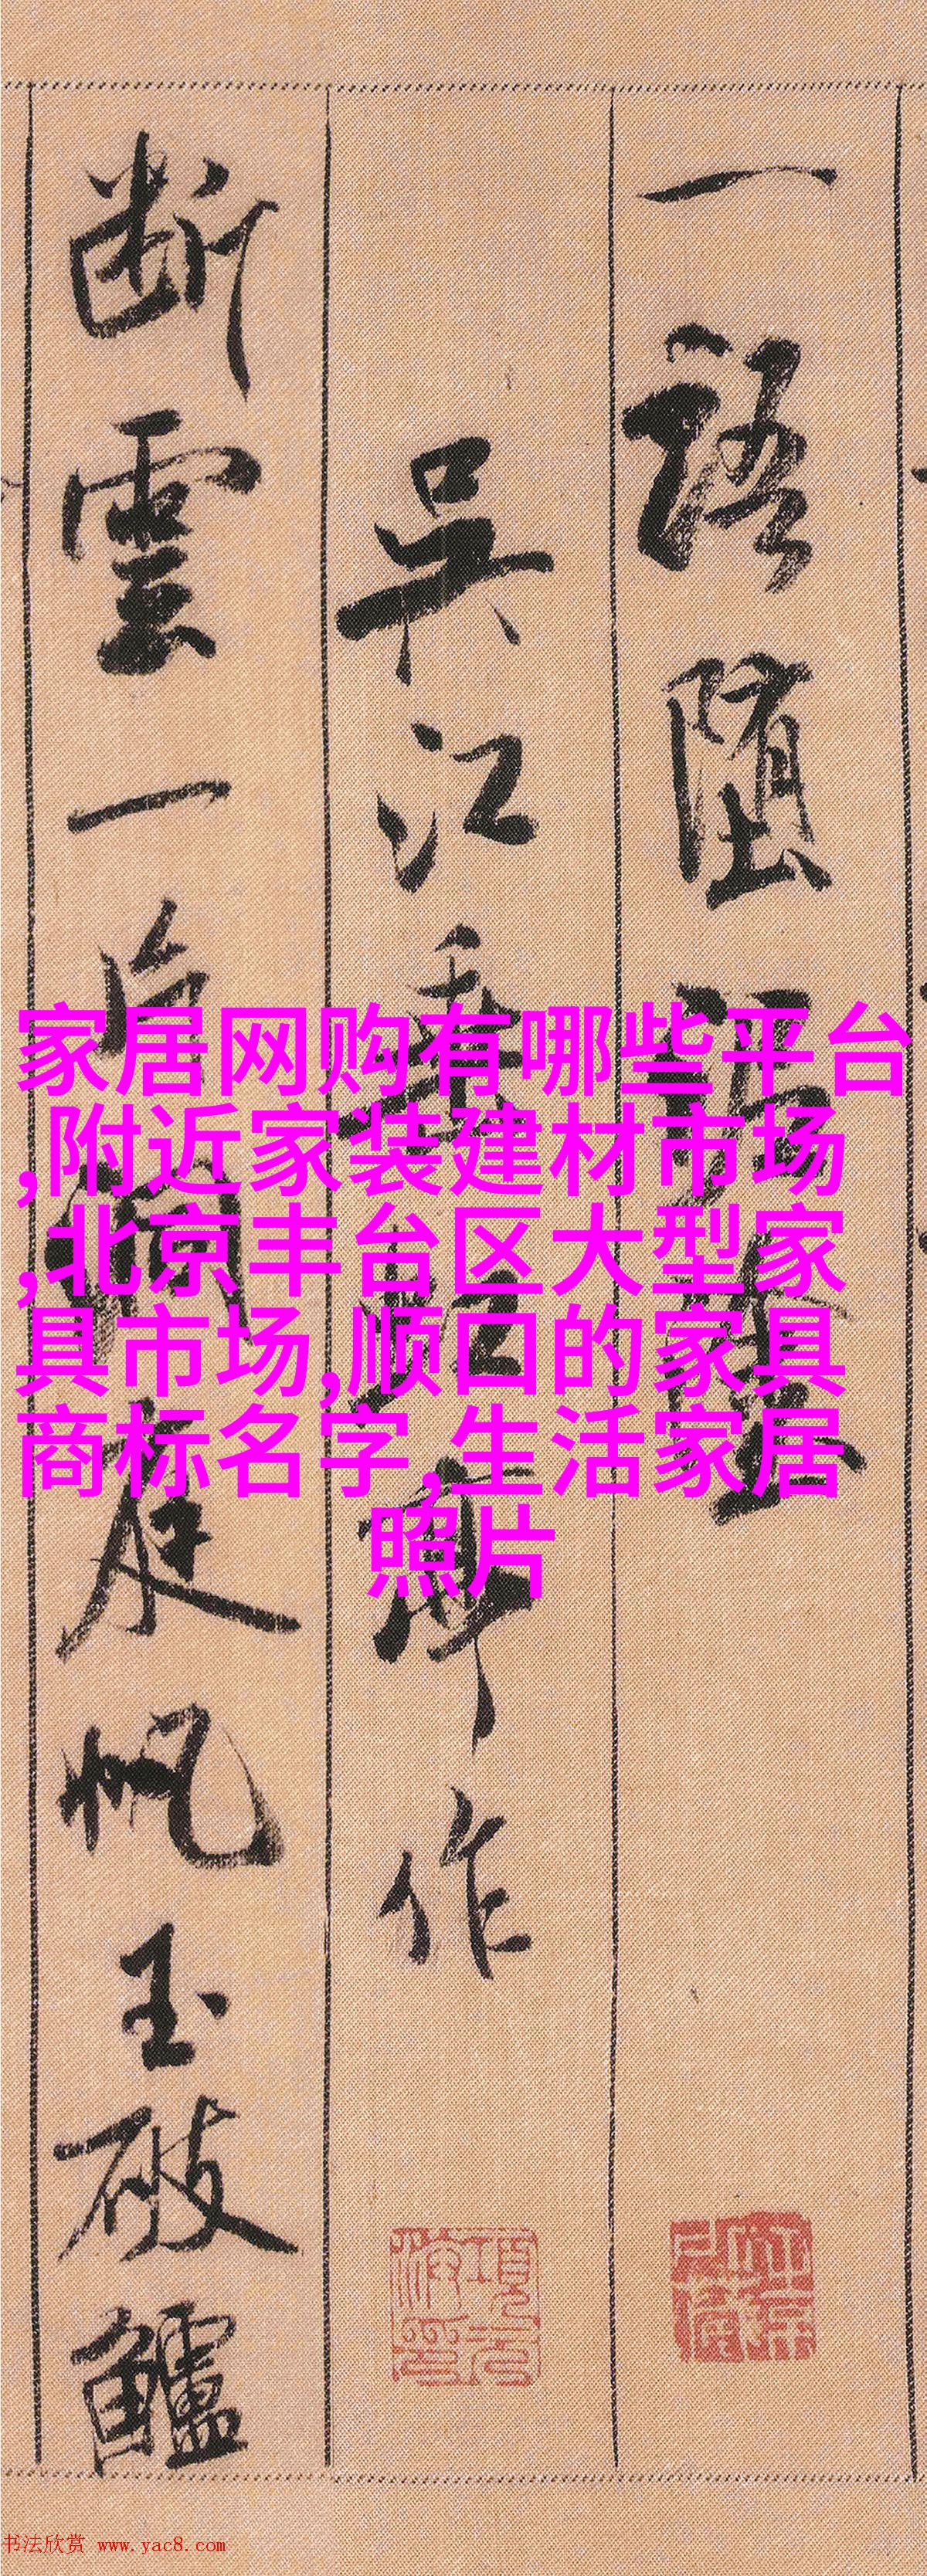 一語墮泥塗
吴江垂虹亭作
断雲一片洞庭帆玉破鱸
家居网购有哪些平台
,附近家装建材市场
,北京丰台区大型家
具市场,顺口的家具
商标名字,生活家居
照片
书法欣赏 www.yac8.com